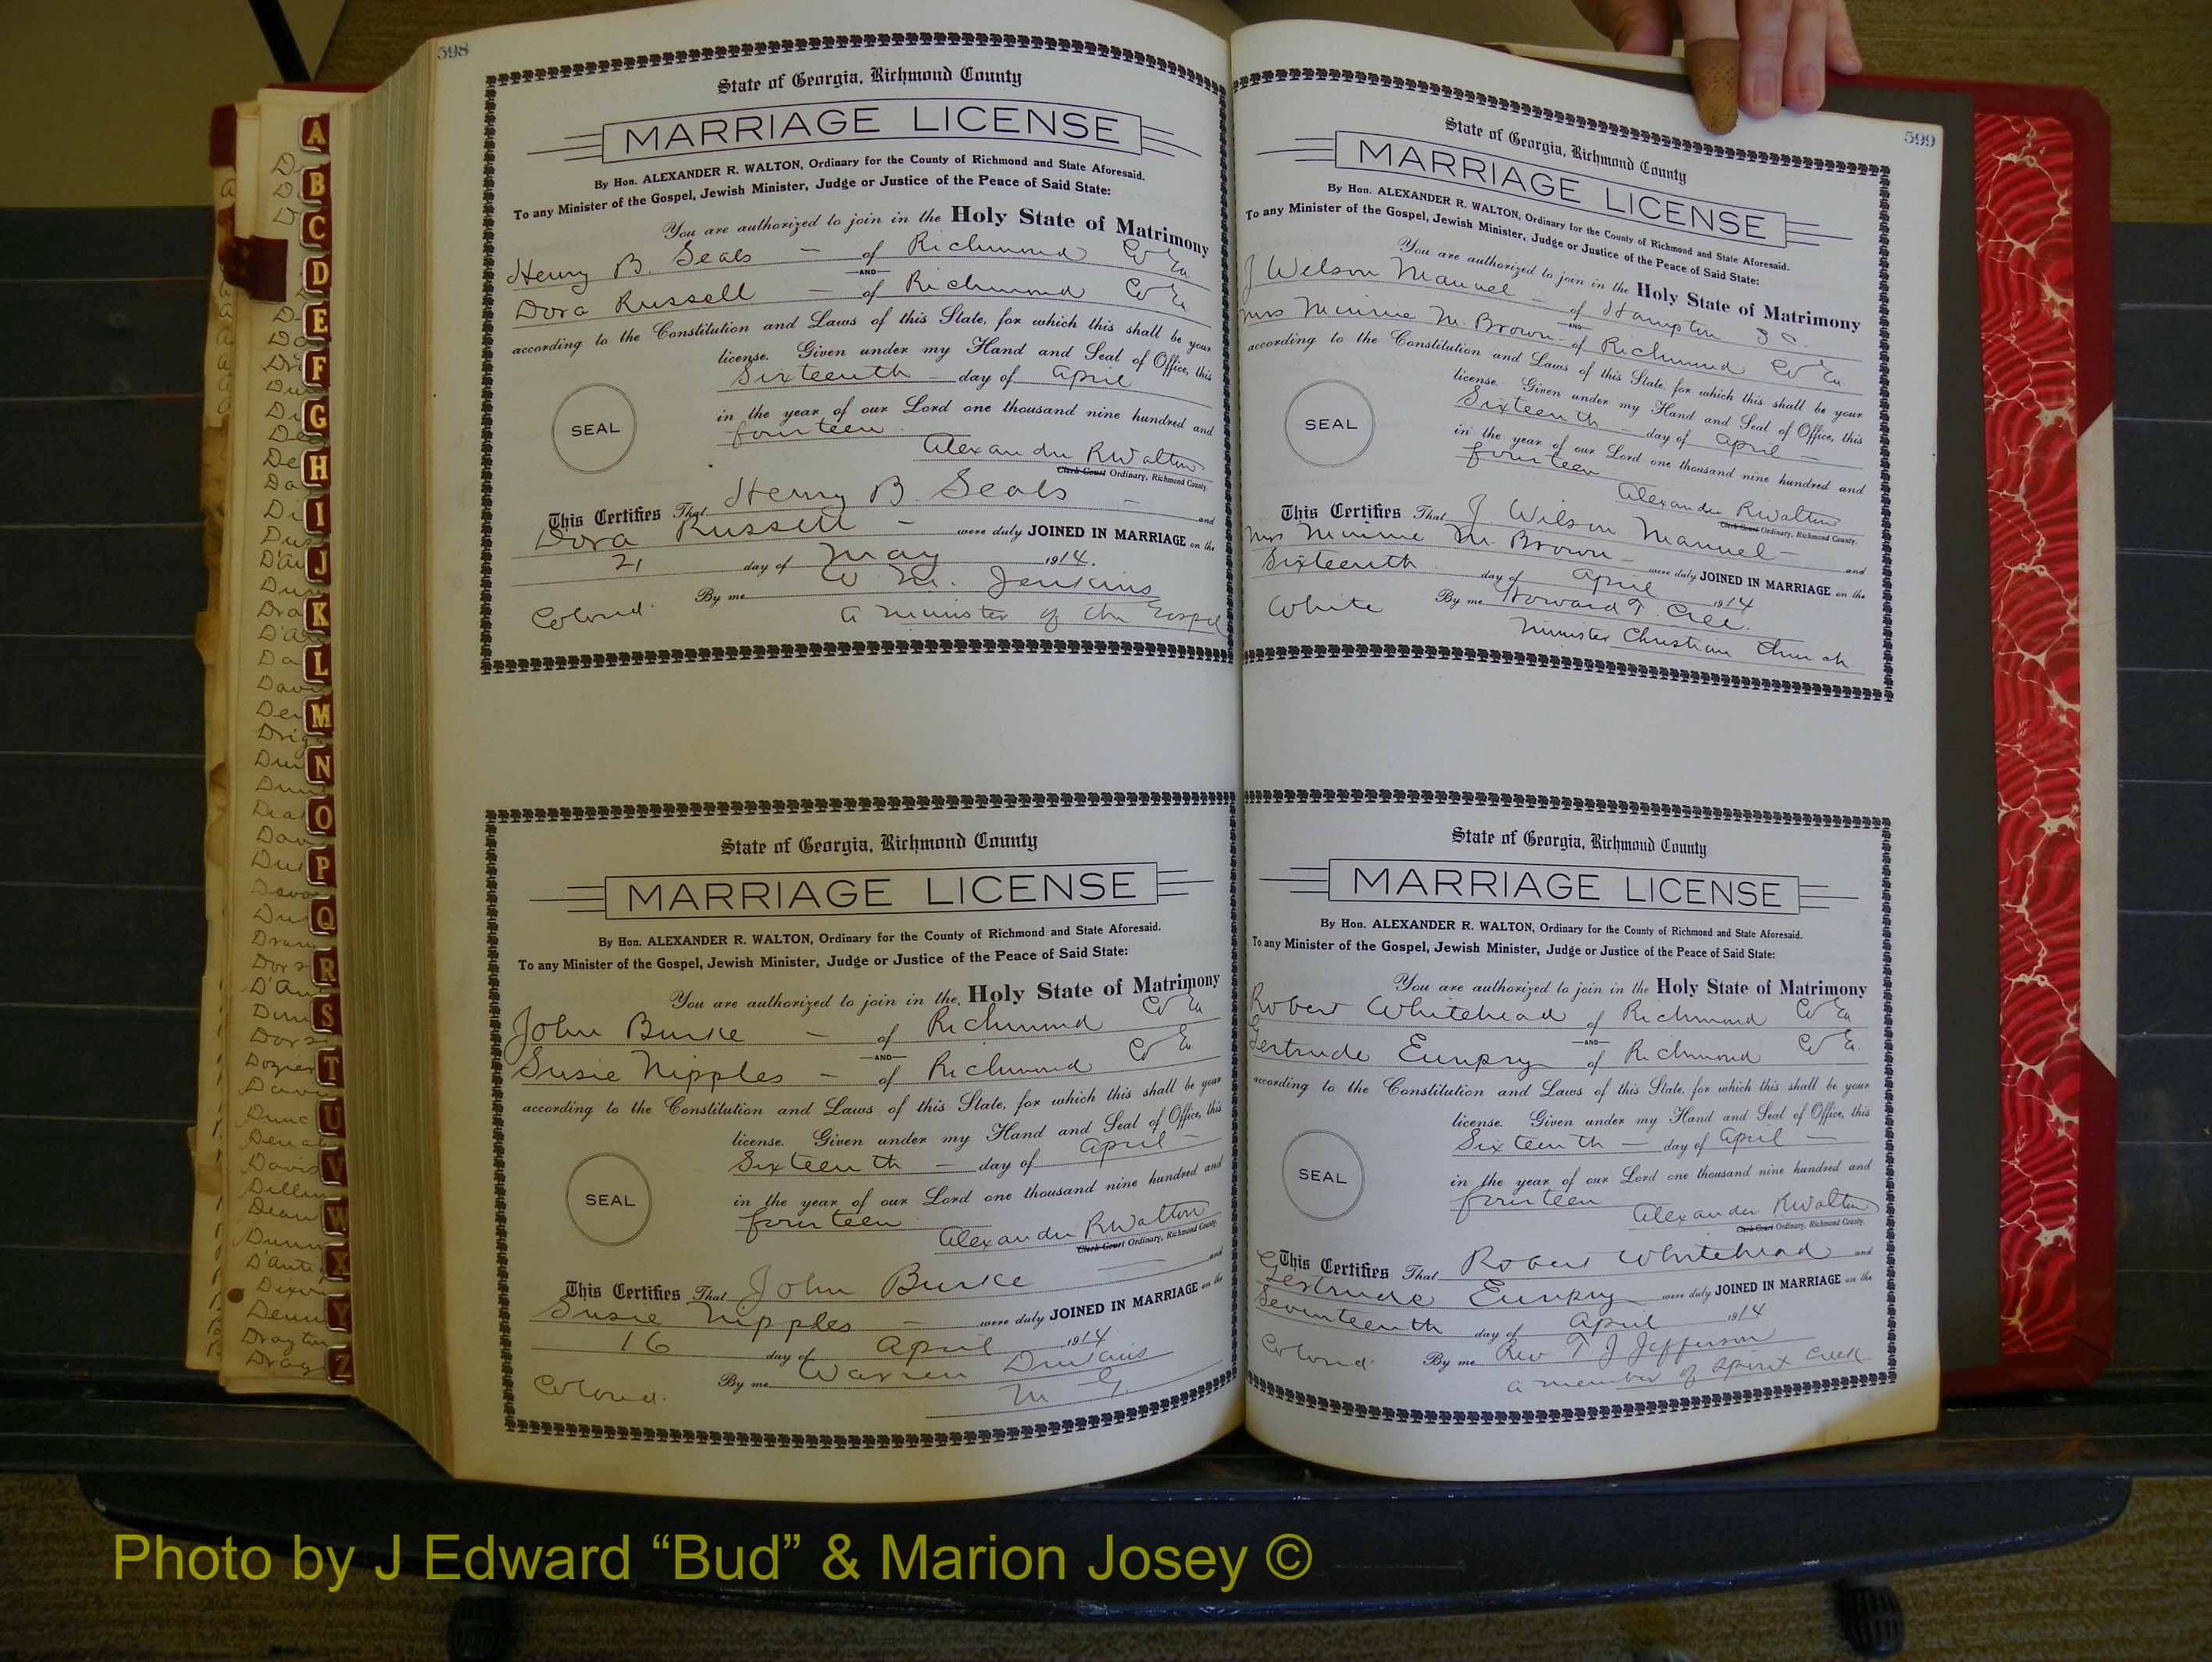 598
State of Georgia, Richmond County
MARRIAGE LICENSE
By Hon. ALEXANDER R. WALTON, Ordinary for the County of Richmond and State Aforesaid.
To any Minister of the Gospel, Jewish Minister, Judge or Justice of the Peace of Said State:
You are authorized to join in the Holy State of Matrimony
Henry B. Seals — of Richmond Co Ga
AND
Dora Russell — of Richmond Co Ga
according to the Constitution and Laws of this State, for which this shall be your
license. Given under my Hand and Seal of Office, this
Sixteenth — day of April
in the year of our Lord one thousand nine hundred and
fourteen
SEAL
Alexander R Walton
Clerk Court Ordinary, Richmond County.
This Certifies That Henry B. Seals — and
Dora Russell — were duly JOINED IN MARRIAGE on the
21 day of May 1914.
By me W. M. Jenkins
Colored. a minister of the Gospel
State of Georgia, Richmond County
MARRIAGE LICENSE
By Hon. ALEXANDER R. WALTON, Ordinary for the County of Richmond and State Aforesaid.
To any Minister of the Gospel, Jewish Minister, Judge or Justice of the Peace of Said State:
You are authorized to join in the Holy State of Matrimony
John Burke — of Richmond Co Ga
AND
Susie Nipples — of Richmond Co Ga
according to the Constitution and Laws of this State, for which this shall be your
license. Given under my Hand and Seal of Office, this
Sixteenth — day of April —
in the year of our Lord one thousand nine hundred and
fourteen
SEAL
Alexander R Walton
Clerk Court Ordinary, Richmond County.
This Certifies That John Burke — and
Susie Nipples — were duly JOINED IN MARRIAGE on the
16 day of April 1914
By me Warren
Colored. M G.
599
State of Georgia, Richmond County
MARRIAGE LICENSE
By Hon. ALEXANDER R. WALTON, Ordinary for the County of Richmond and State Aforesaid.
To any Minister of the Gospel, Jewish Minister, Judge or Justice of the Peace of Said State:
You are authorized to join in the Holy State of Matrimony
J Wilson Manuel — of Hampton S C.
AND
Mrs Minnie M. Brown — of Richmond Co Ga.
according to the Constitution and Laws of this State, for which this shall be your
license. Given under my Hand and Seal of Office, this
Sixteenth — day of April —
in the year of our Lord one thousand nine hundred and
fourteen
SEAL
Alexander R Walton
Clerk Court Ordinary, Richmond County.
This Certifies That J. Wilson Manuel — and
Mrs Minnie M. Brown — were duly JOINED IN MARRIAGE on the
Sixteenth day of April 1914
White By me Howard T. Cree.
Minister Christian Church
State of Georgia, Richmond County
MARRIAGE LICENSE
By Hon. ALEXANDER R. WALTON, Ordinary for the County of Richmond and State Aforesaid.
To any Minister of the Gospel, Jewish Minister, Judge or Justice of the Peace of Said State:
You are authorized to join in the Holy State of Matrimony
Robert Whitehead of Richmond Co Ga
AND
Gertrude of Richmond Co Ga.
according to the Constitution and Laws of this State, for which this shall be your
license. Given under my Hand and Seal of Office, this
Sixteenth — day of April —
in the year of our Lord one thousand nine hundred and
fourteen
SEAL
Alexander R Walton
Clerk Court Ordinary, Richmond County.
This Certifies That Robert Whitehead and
Gertrude were duly JOINED IN MARRIAGE on the
Seventeenth day of April 1914
Colored By me Rev T J Jefferson
a member of Spirit Creek
A
B
C
D
E
F
G
H
I
J
K
L
M
N
O
P
Q
R
S
T
U
V
W
X
Y
Z
Photo by J Edward “Bud” & Marion Josey ©